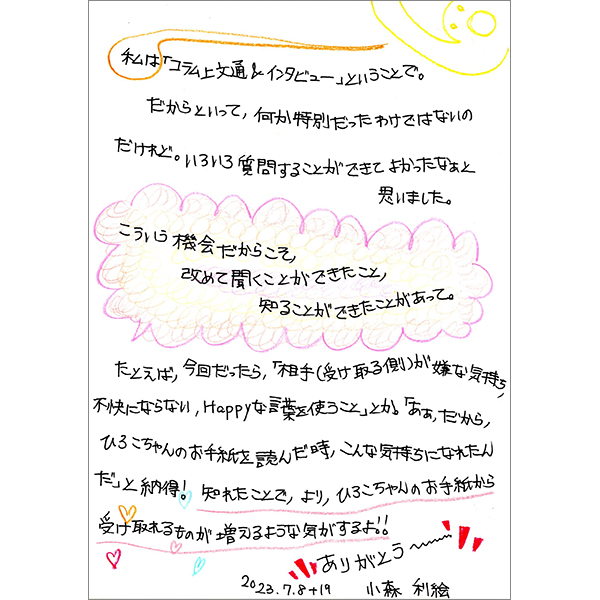 私は「コラム上文通&インタビュー」ということで。
だからといって、何か特別だったわけではないの
だけれど。いろいろ質問することができてよかったなぁと
思いました。
こういう機会だからこそ、
改めて聞くことができたこと、
知ることができたことがあって。
たとえば、今回だったら、「相手(受け取る側)が嫌な気持ち、
不快にならない、Happyな言葉を使うこと」とか。「あぁ、だから、
ひろこちゃんのお手紙を読んだ時、こんな気持ちになれたん
だ」と納得!知れたことで、より、ひろこちゃんのお手紙から
受け取れるものが増えるような気がするよ!!
ありがとう〜
2023.7.8+19 小森 利絵